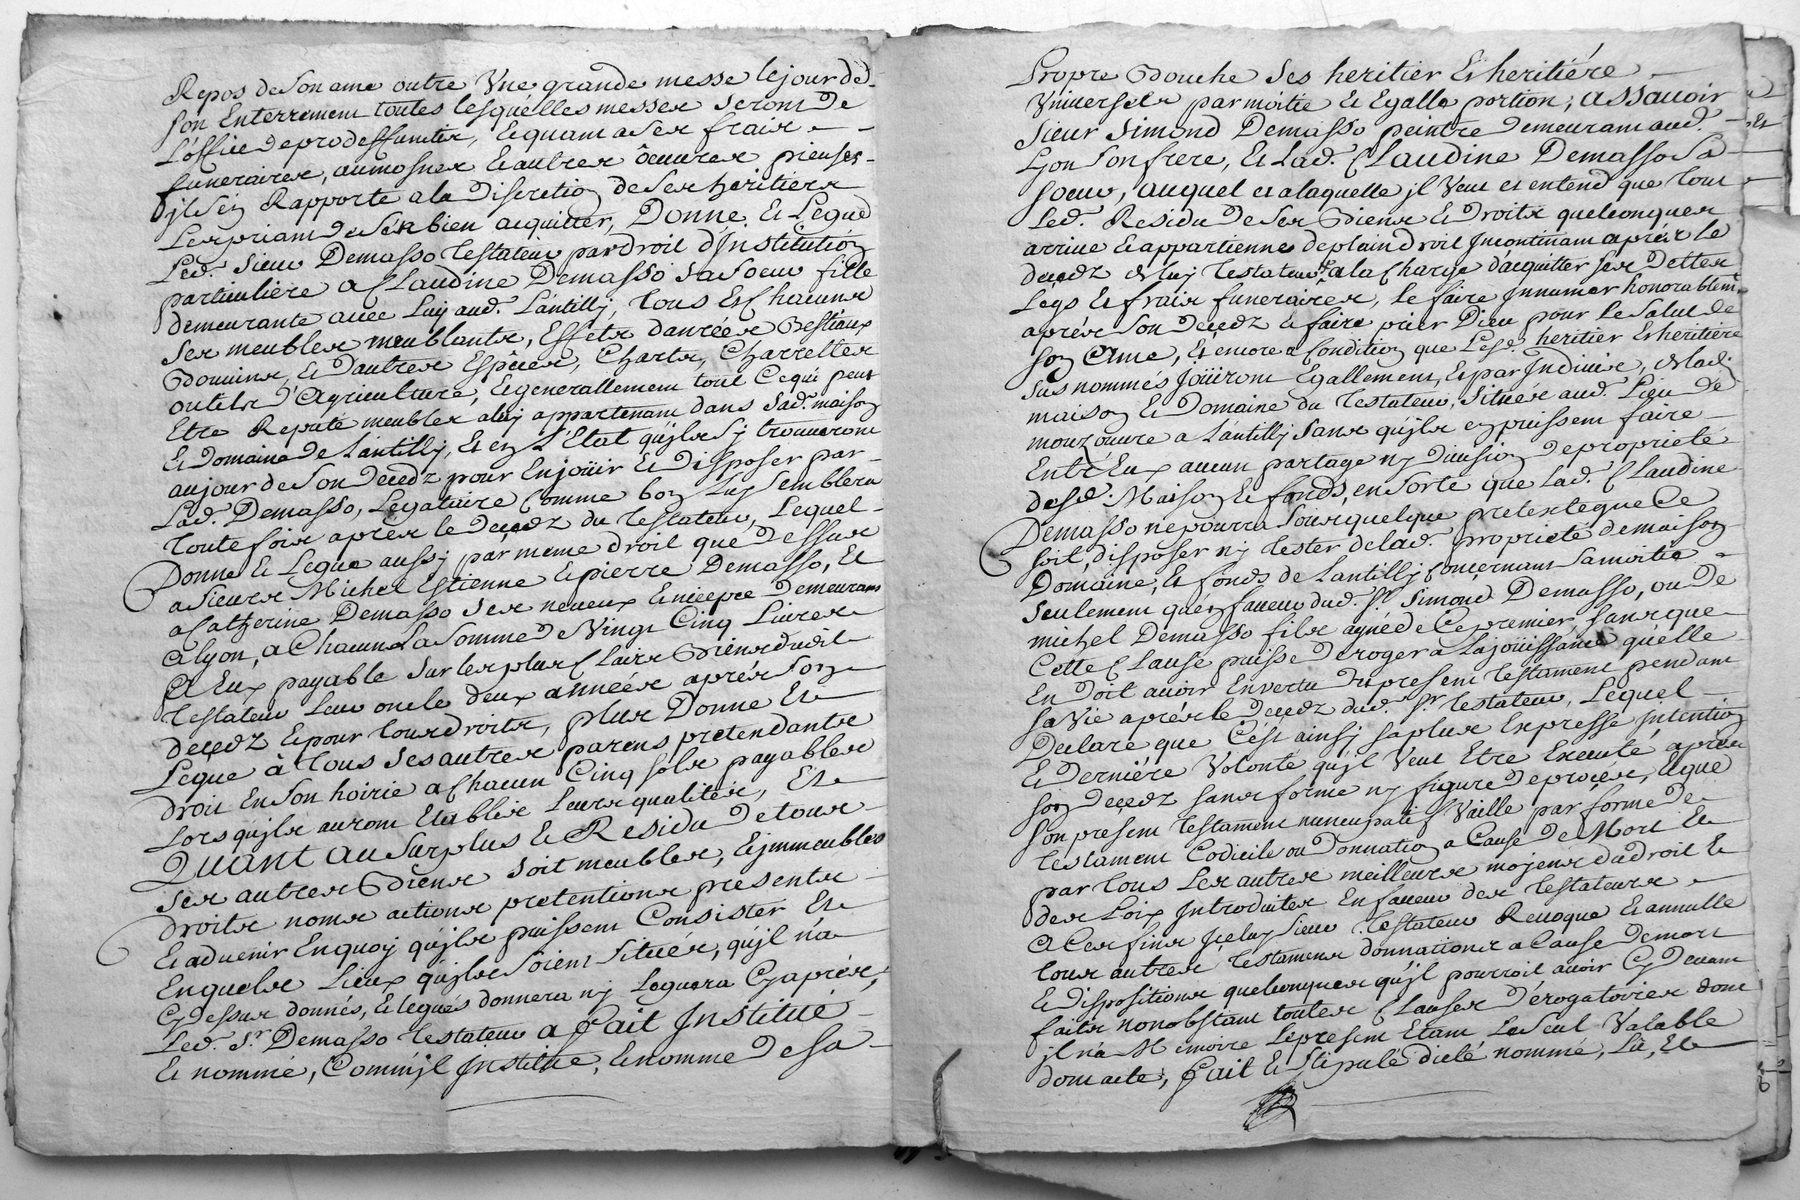 Repos de Son ame outre Une grande messe le jour de
son Enterrement toutes lesquelles messes seront de
l'office de pro deffunctis, Et quant a ses frais
funeraires, aumosnes Et autres oeuvres pieuses
jl s'en Rapporte a la Discretion de ses heritiers
Les priant de s'en bien acquitter, Donne Et Legue
Led. Sieur Demasso testateur par droit d'Institution
particuliere a Claudine Demasso sa soeur fille
demeurante avec Luy aud. Lantilly, tous Et Chacuns
ses meubles meublants, Effets danrées Bestiaux
Bovins, Et Dautres Espèces, Charts, Charrettes
outils d'Agriculture, Et generallement tout Cequi peut
Etre Reputé meubles a luy appartenant dans sad. maison
Et Domaine de Lantilly, Et en L'Etat qu'jls sy trouveront
au jour de Son Decedz pour En joüir Et Disposer par
Lad. Demasso, Legataire Comme bon Luy semblera
toute fois après le Decedz du testateur, Lequel
Donne Et Legue aussy par meme droit que Dessus
a Sieurs Michel Estienne Et pierre Demasso, Et
a Catherine Demasso ses neveux Et niepce Demeurans
a Lyon, a Chacuns La somme de Vingt Cinq Livres
a Eux payable sur les plus Clairs Biens dudit
testateur Leur oncle deux années après son
decedz Et pour tous droits, plus Donne Et
Legue à tous ses autres parens pretendants
droit En Son hoirie a Chacun Cinq sols payables
Lors qu'jls auront Etablis Leurs qualités, Et
Quant au Surplus Et Residu de tous
ses autres Biens soit meubles, Et jmmeubles
droits noms actions pretentions presents
Et advenir En quoy qu'jls puissent Consister Et
En quels Lieux qu'jls soient Situés, qu'jl n'a
Cy Dessus donnés, Et legués donnera ny Leguera Cy après,
Led. Sr. Demasso testateur a fait Institué
Et nommé, Comm'jl Institue, Et nomme De sa
Propre Bouche Ses heritier Et heritiére
Universels par moitié Et Egalle portion; assavoir
Sieur Simond Demasso peintre demeurant aud.
Lyon son frere, Et Lad. Claudine Demasso Sa
soeur, auquel et a laquelle jl Veut et entend que tout
Led. Residu de ses Biens Et Droits quelconques
arrive Et appartiennes de plain droit Incontinant après le
decedz de luy testateur a la Charge d'acquitter ses Dettes
Legs Et frais funeraires, le faire Innumer honorablemt.
après son decedz Et faire prier Dieu pour le salut de
son Ame, Et encore a Condition que Lesd. heritier Et heritiere
sus nommés Joüiront Egallement, Et par Indivis, de lad.
maison Et Domaine du testateur, Situés aud. Lieu de
a Lantilly sans qu'jls en puissent faire
Entr'Eux aucun partage ny division de proprieté
desd. Maison Et fonds, en sorte que Lad. Claudine
Demasso ne pourra sous quelque pretexte que Ce
soit, disposer ny tester de lad. proprieté de maison
Domaine, Et fonds de Lantilly Conçernant Sa moitié
Seulement qu'en faveur dud. Sr. Simond Demasso, ou de
michel Demasso fils ayné de Ce premier, sans que
Cette Clause puisse Deroger à La joüissance qu'elle
En doit avoir En vertu du present testament pendant
sa Vie après le Decedz dud. Sr. testateur, Lequel
Declare que C'est ainsj sa plus Expresse jntention
Et Derniére Volonté qu'jl Veut Etre Executé après
son Decedz sans forme ny figure de procés, Et que
son present testament nuncupatif Vaille par forme de
testament Codicile ou Donnation a Cause de Mort Et
par tous Les autres meilleurs moyens du droit Et
des Loix Introduites En faveur des testateurs
a Ces fins jceluy Sieur testateur Revoque Et annulle
tous autres testaments donnations a Cause de mort
Et Dispositions quelconques qu'jl pourroit avoir Cy Devant
faits nonobstant toutes Clauses Dérogatoires dont
jl n'a Mémoire Le present Etant Le Seul Valable
dont acte, fait Et Stipulé dicté nommé, Lû, Et